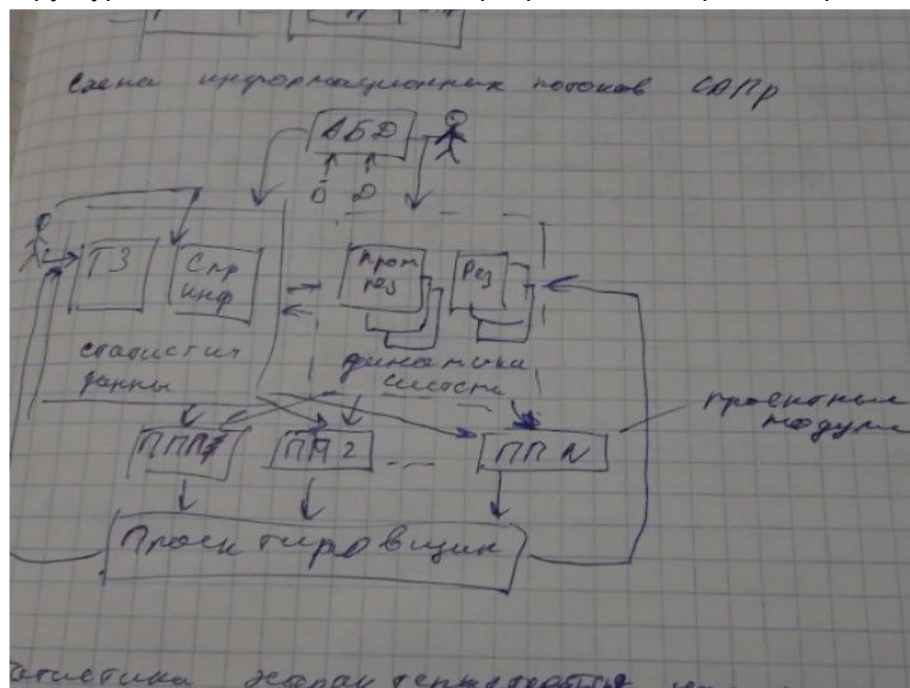 Схема информационных потоков САПр
АБД
Ō D
ТЗ
Спр
инф
Пром
рез
Рез
статистич
данны
динамика
проектные
модули
ППП1 ПП2 ... ПП N
Проектировщик